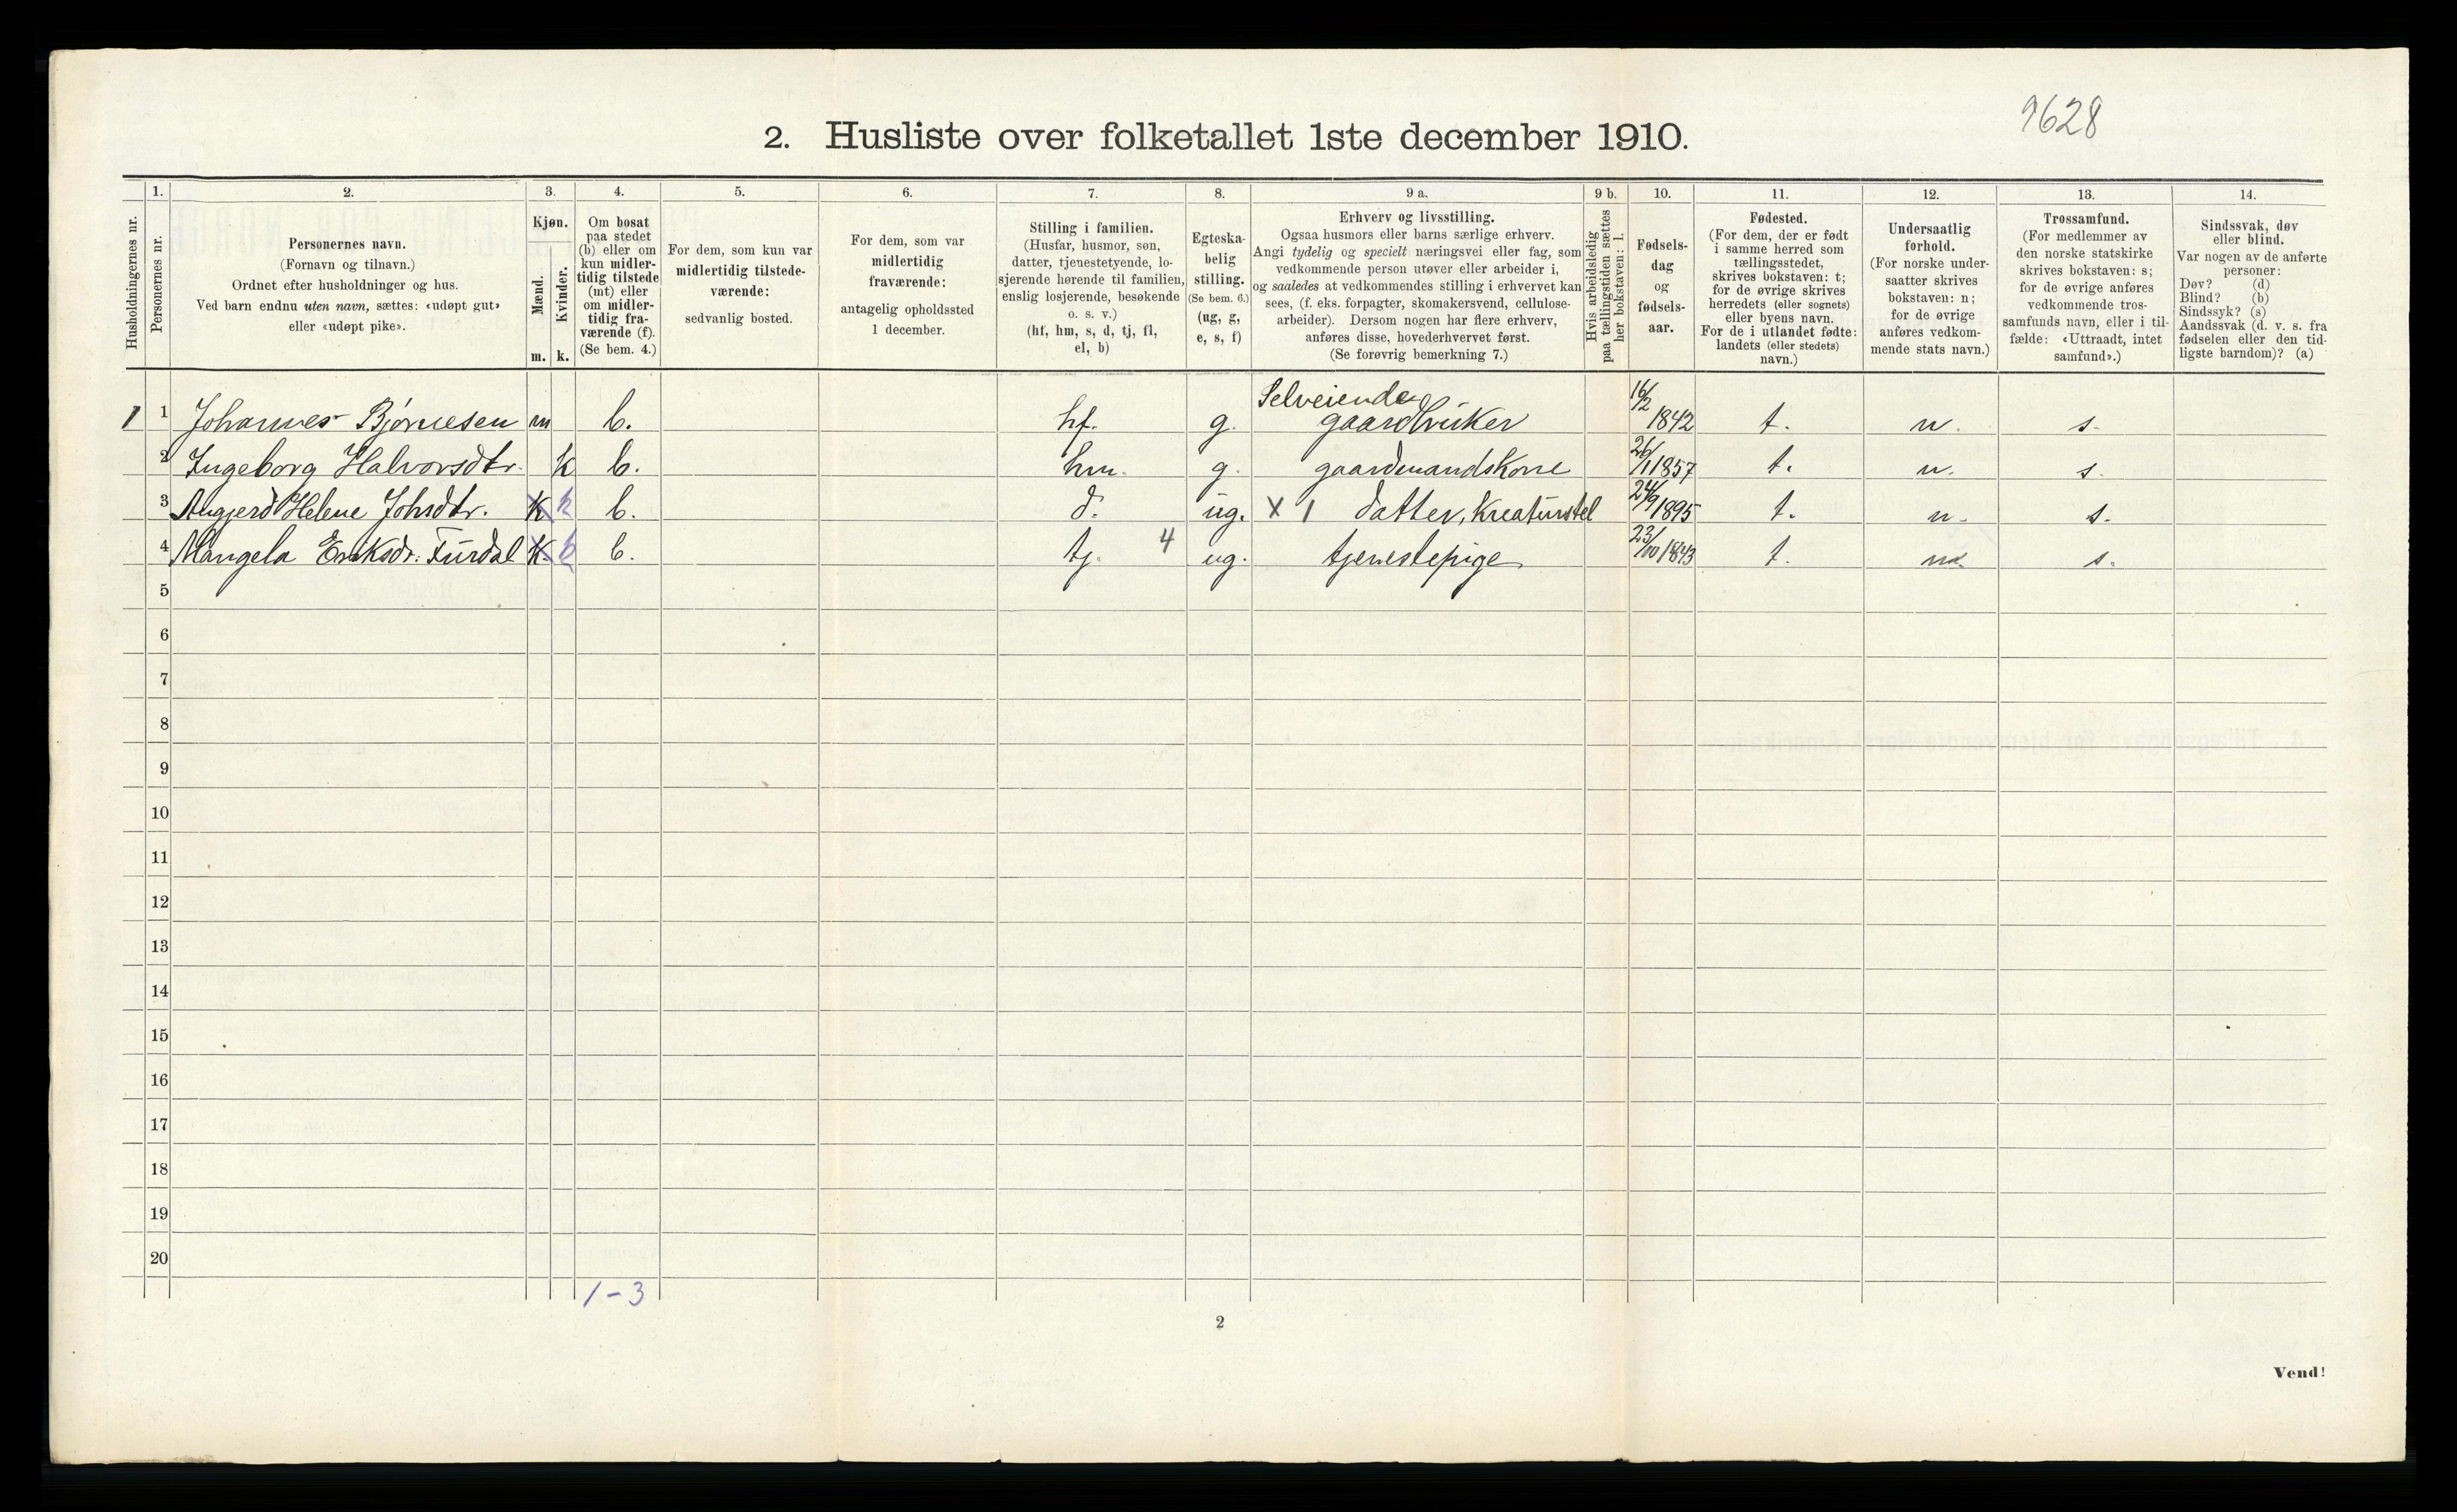 9628
2. Husliste over folketallet 1ste december 1910.
Husholdningernes nr.
1.
Personernes nr.
2.
Personernes navn.
(Fornavn og tilnavn.)
Ordnet efter husholdninger og hus.
Ved barn endnu uten navn, sættes: «udøpt gut»
eller «udøpt pike».
3.
Kjøn.
Mænd.
Kvinder.
m. k.
4.
Om bosat
paa stedet
(b) eller om
kun midler-
tidig tilstede
(mt) eller
om midler-
tidig fra-
værende (f).
(Se bem. 4.)
5.
For dem, som kun var
midlertidig tilstede-
værende:
sedvanlig bosted.
6.
For dem, som var
midlertidig
fraværende:
antagelig opholdssted
1 december.
7.
Stilling i familien.
(Husfar, husmor, søn,
datter, tjenestetyende, lo-
sjerende hørende til familien,
enslig losjerende, besøkende
o. s. v.)
(hf, hm, s, d, tj, fl,
el, b)
8.
Egteska-
belig
stilling.
(Se bem. 6.)
(ug, g,
e, s, f)
9 a.
Erhverv og livsstilling.
Ogsaa husmors eller barns særlige erhverv.
Angi tydelig og specielt næringsvei eller fag, som
vedkommende person utøver eller arbeider i,
og saaledes at vedkommendes stilling i erhvervet kan
sees, (f. eks. forpagter, skomakersvend, cellulose-
arbeider). Dersom nogen har flere erhverv,
anføres disse, hovederhvervet først.
(Se forøvrig bemerkning 7.)
9 b.
Hvis arbeidsledig
paa tællingstiden sættes
her bokstaven: l.
10.
Fødsels-
dag
og
fødsels-
aar.
11.
Fødested.
(For dem, der er født
i samme herred som
tællingsstedet,
skrives bokstaven: t;
for de øvrige skrives
herredets (eller sognets)
eller byens navn.
For de i utlandet fødte:
landets (eller stedets)
navn.)
12.
Undersaatlig
forhold.
(For norske under-
saatter skrives
bokstaven: n;
for de øvrige
anføres vedkom-
mende stats navn.)
13.
Trossamfund.
(For medlemmer av
den norske statskirke
skrives bokstaven: s;
for de øvrige anføres
vedkommende tros-
samfunds navn, eller i til-
fælde: «Uttraadt, intet
samfund».)
14.
Sindssvak, døv
eller blind.
Var nogen av de anførte
personer:
Døv? (d)
Blind? (b)
Sindssyk? (s)
Aandssvak (d. v. s. fra
fødselen eller den tid-
ligste barndom)? (a)
1 1 Johannes Bjørnesen m b. hf. g. Selveiende gaardbruker 16/2 1842 t. n. s.
2 Ingeborg Halvorsdtr. k b. hm. g. gaardmandskone 26/1 1857 t. n. s.
3 Angjerd Helene Johsdtr. K k b. d. ug. X 1 datter, Kreaturstel 24/9 1895 t. n. s.
4 Mangela Eriksdr. Furdal K k b. tj. 4 ug. tjenestepige 23/10 1843 t. n. s.
5
6
7
8
9
10
11
12
13
14
15
16
17
18
19
20
1 - 3
2
Vend!